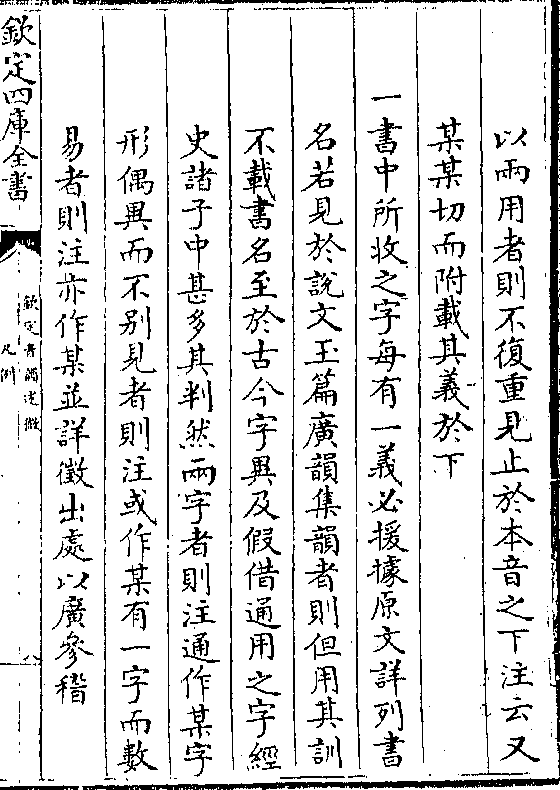 以兩用者則不復重見止於本音之下注云又
某某切而附載其義於下
一書中所收之字每有一義必援據原文詳列書
名若見於說文玉篇廣韻集韻者則但用其訓
不載書名至於古今字異及假借通用之字經
史諸子中甚多其判然兩字者則注通作某字
形偶異而不别見者則注或作某有一字而數
易者則注亦作某並詳徵出處以廣參稽
欽定四庫全書
欽定音韻述微
凡例
八